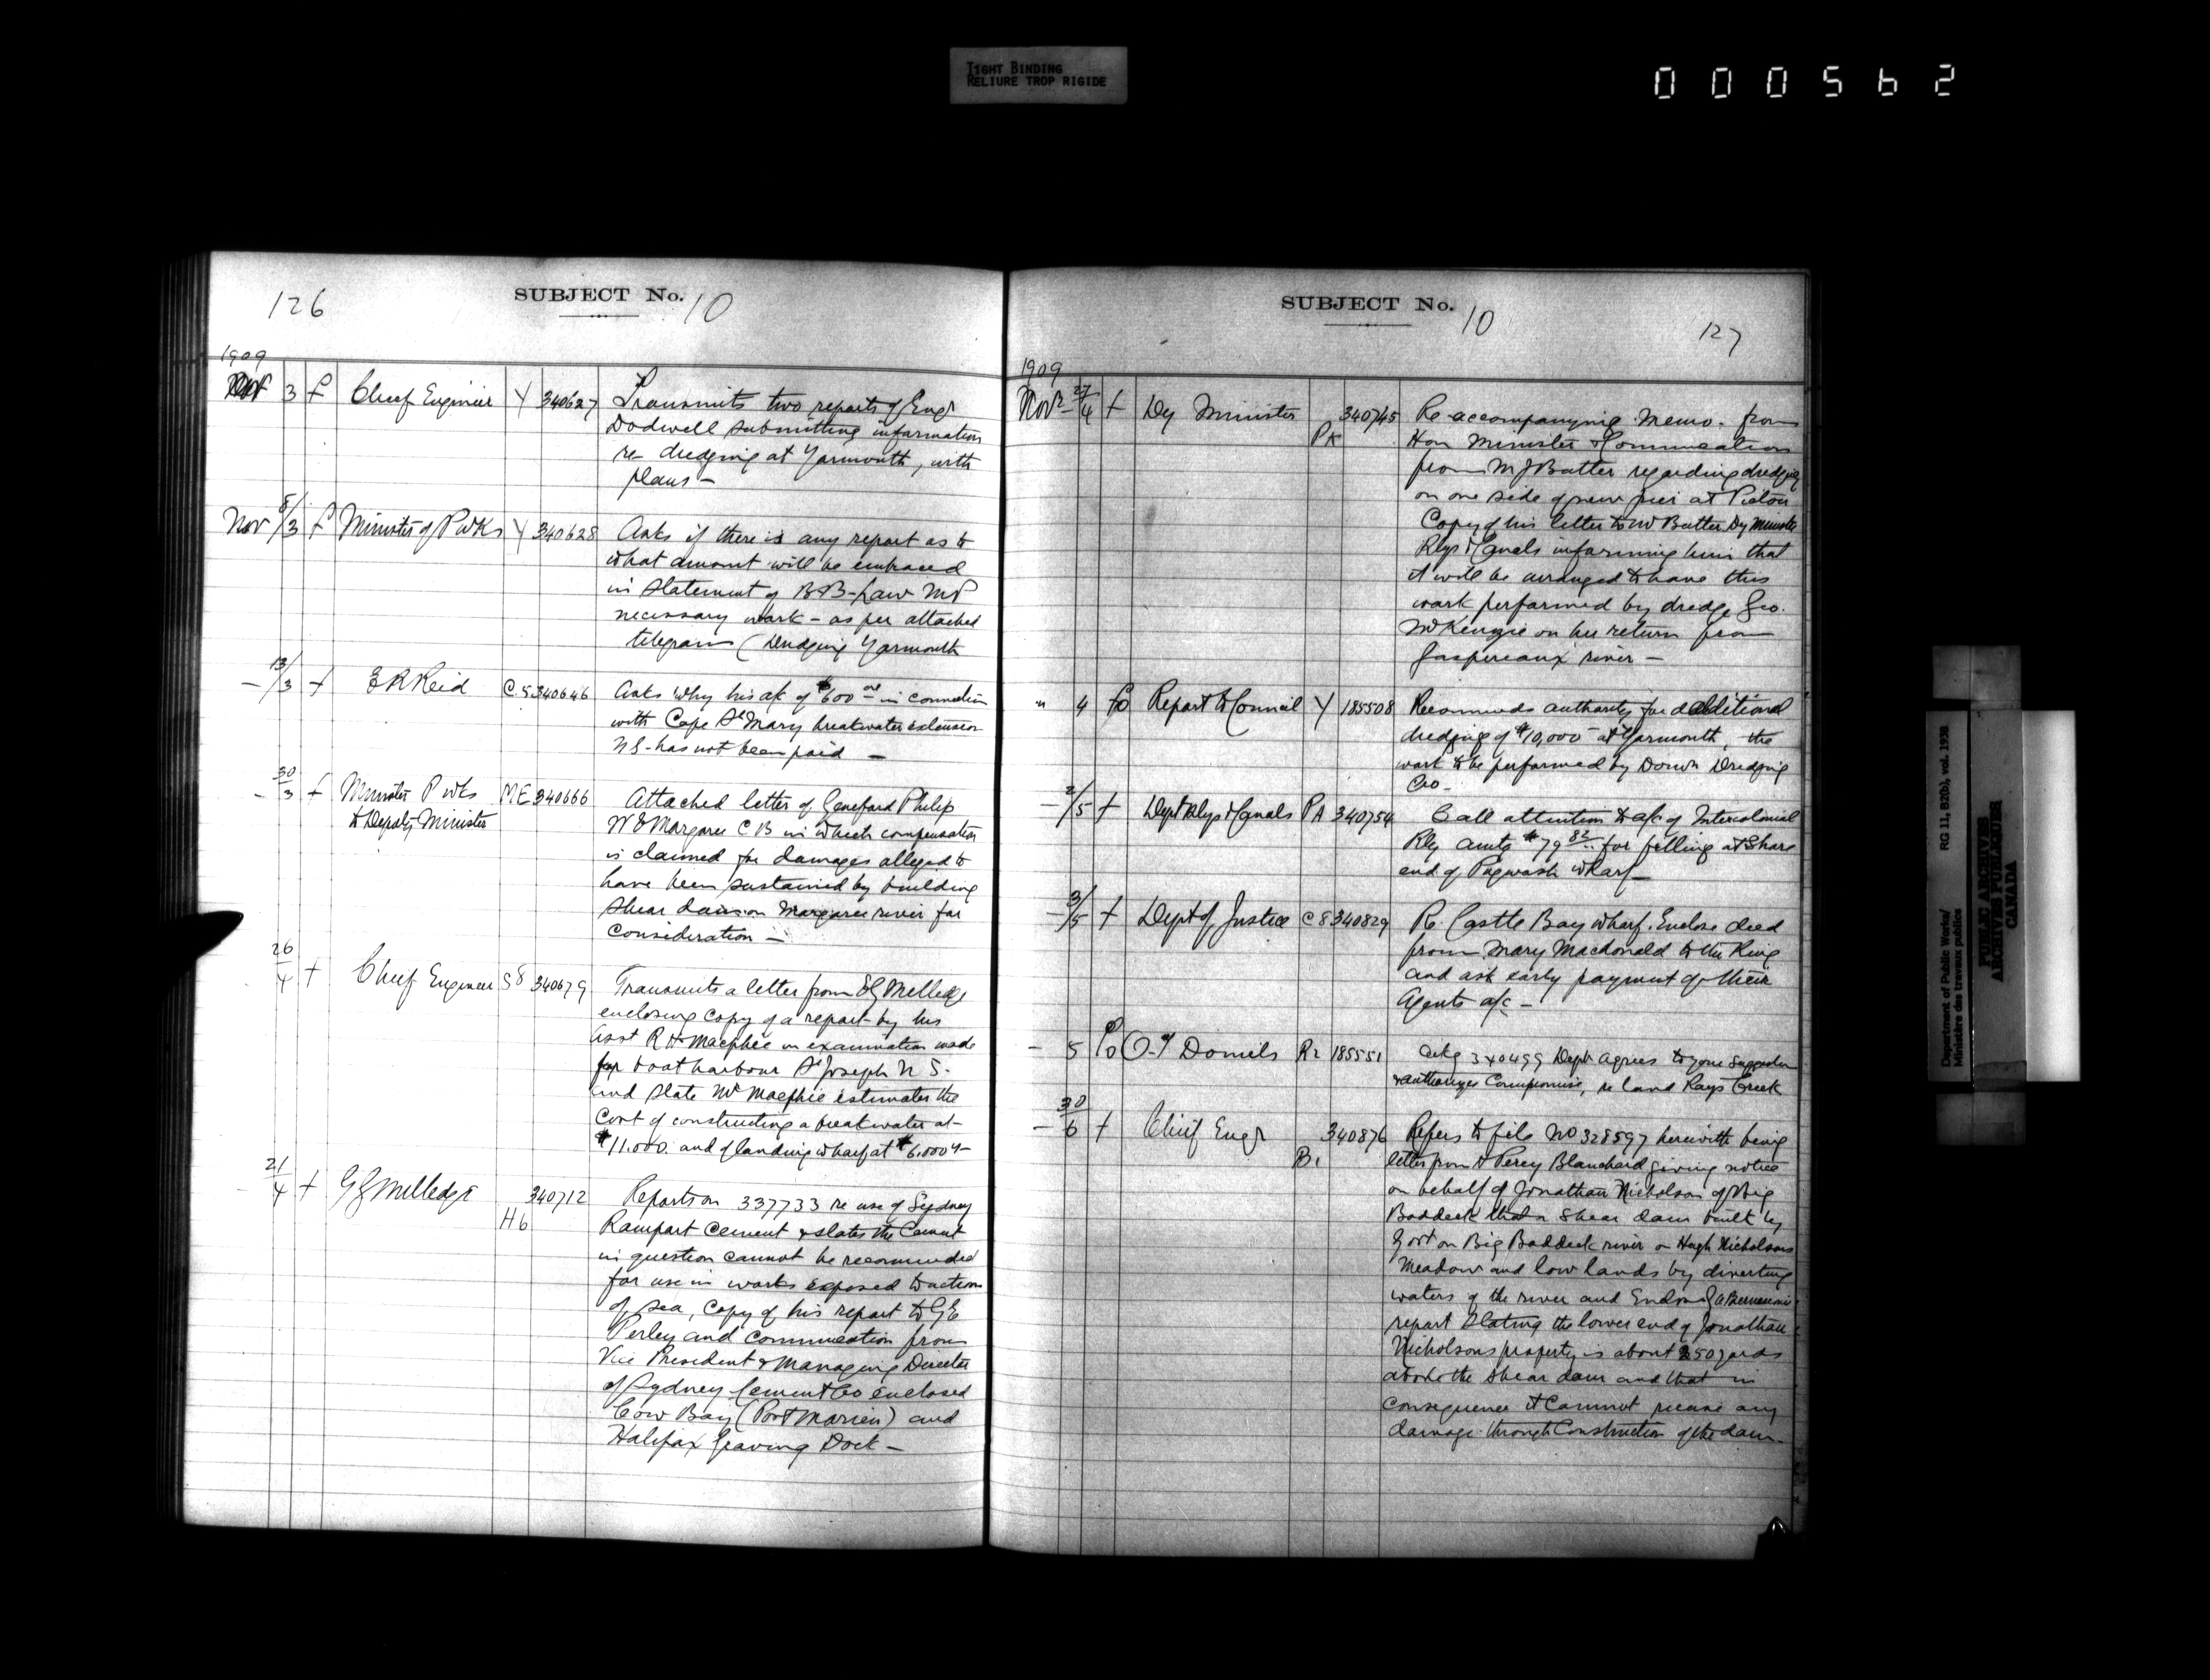 TIGHT BINDING
RELIURE TROP RIGIDE
000562
126
SUBJECT No. 10
1909
Nov 3 f Chief Engineer Y 340627 Transmits two reports of Engr
Dodwell submitting information
re dredging at Yarmouth, with
plans —
Nov 8/3 f Minister of P Wks Y 340628 Asks if there is any report as to
what amount will be embraced
in statement of B B Law MP
necessary work - as per attached
telegram (Dredging Yarmouth
— 13/3 f E R Reid C5 340646 Asks why his a/c of $600 00 in connection
with Cape St Mary breakwater extension
N S - has not been paid —
— 30/3 f Minister P wks ME 340666 Attached letter of Philip
to Deputy Minister
N E Margaree C B in which compensation
is claimed for damages alleged to
have been sustained by building
shear dam on Margaree river for
consideration —
26/4 f Chief Engineer S8 340679 Transmits a letter from E G Milledge
enclosing copy of a report by his
Asst R H Macphee on examination made
for boat harbour St Joseph N S.
and state Mr Macphie estimates the
cost of constructing a breakwater at-
$11.000. and of landing wharf at $6.000 —
— 21/4 f G G Milledge H6 340712 Reports on 337733 re use of Sydney
Rampart Cement & states the Cement
in question cannot be recommended
for use in works exposed to action
of sea, Copy of his report to G E
Perley and commucation from
Vice President & Managing Director
of Sydney Cement Co enclosed
Cow Bay (Port Morien) and
Halifax Graving Dock —
SUBJECT No. 10
127
1909
Nov 27/4 f Dy Minister PK 340745 Re accompanying Memo. from
Hon Minister & Commucation
from M J Butler regarding dredging
on one side of new pier at Pictou
Copy of his letter to Mr Butler Dy Minister
Rlys & Canals informing him that
it will be arranged to have this
work performed by dredge Geo.
McKenzie on her return from
Gaspereaux river —
" 4 fo Report to Council Y 185508 Recommends authority for additional
dredging of $10,000 at Yarmouth, the
work to be performed by Domn Dredging
Co -
— 2/5 f Dept Rlys & Canals PA 340754 Call attention to a/c of Intercolonial
Rly amtg $79 82 for filling at Shore
end of Pugwash Wharf —
— 3/5 f Dept of Justice C8 340829 Re Castle Bay wharf. Enclose deed
from Mary Macdonald to the King
and ask early payment of their
Agents a/c —
— 5 fo O. Daniels R2 185551 Ackg 340499 Dept agrees to your suggestion
& authorizes Compromise, re land Rays Creek
— 30/6 f Chief Engr B1 340876 Refers to file No 328597 herewith being
letter from Percy Blanchard giving notice
on behalf of Jonathan Nicholson of Big
Baddeck that a shear dam built by
Govt on Big Baddeck river on Hugh Nicholsons
Meadow and low lands by diverting
waters of the river and Enclose
report stating the lower end of Jonathan
Nicholsons property is about 250 yards
above the shear dam and that in
consequence it cannot receive any
damage through Construction of the dam —
Department of Public Works/
Ministère des travaux publics
RG 11, B2(b), vol. 1938
PUBLIC ARCHIVES
ARCHIVES PUBLIQUES
CANADA